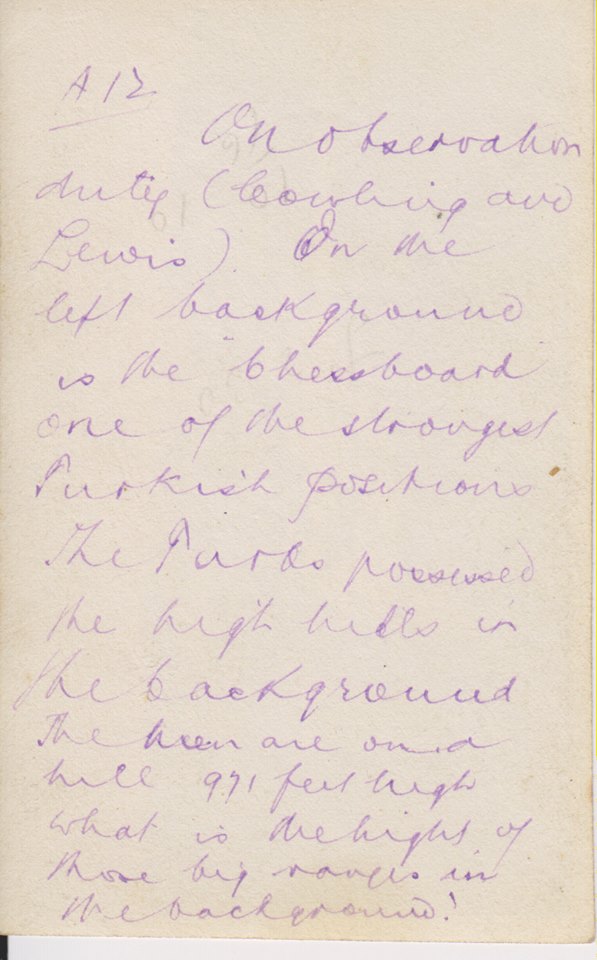 A 12
On observation
duty (Cowling and
Lewis). On the
left background
is the "Chessboard"
one of the strongest
Turkish positions
The Turks possessed
the high hills in
the background
The men are on a
hill 971 feet high
what is the hight of
those big ranges in
the background!